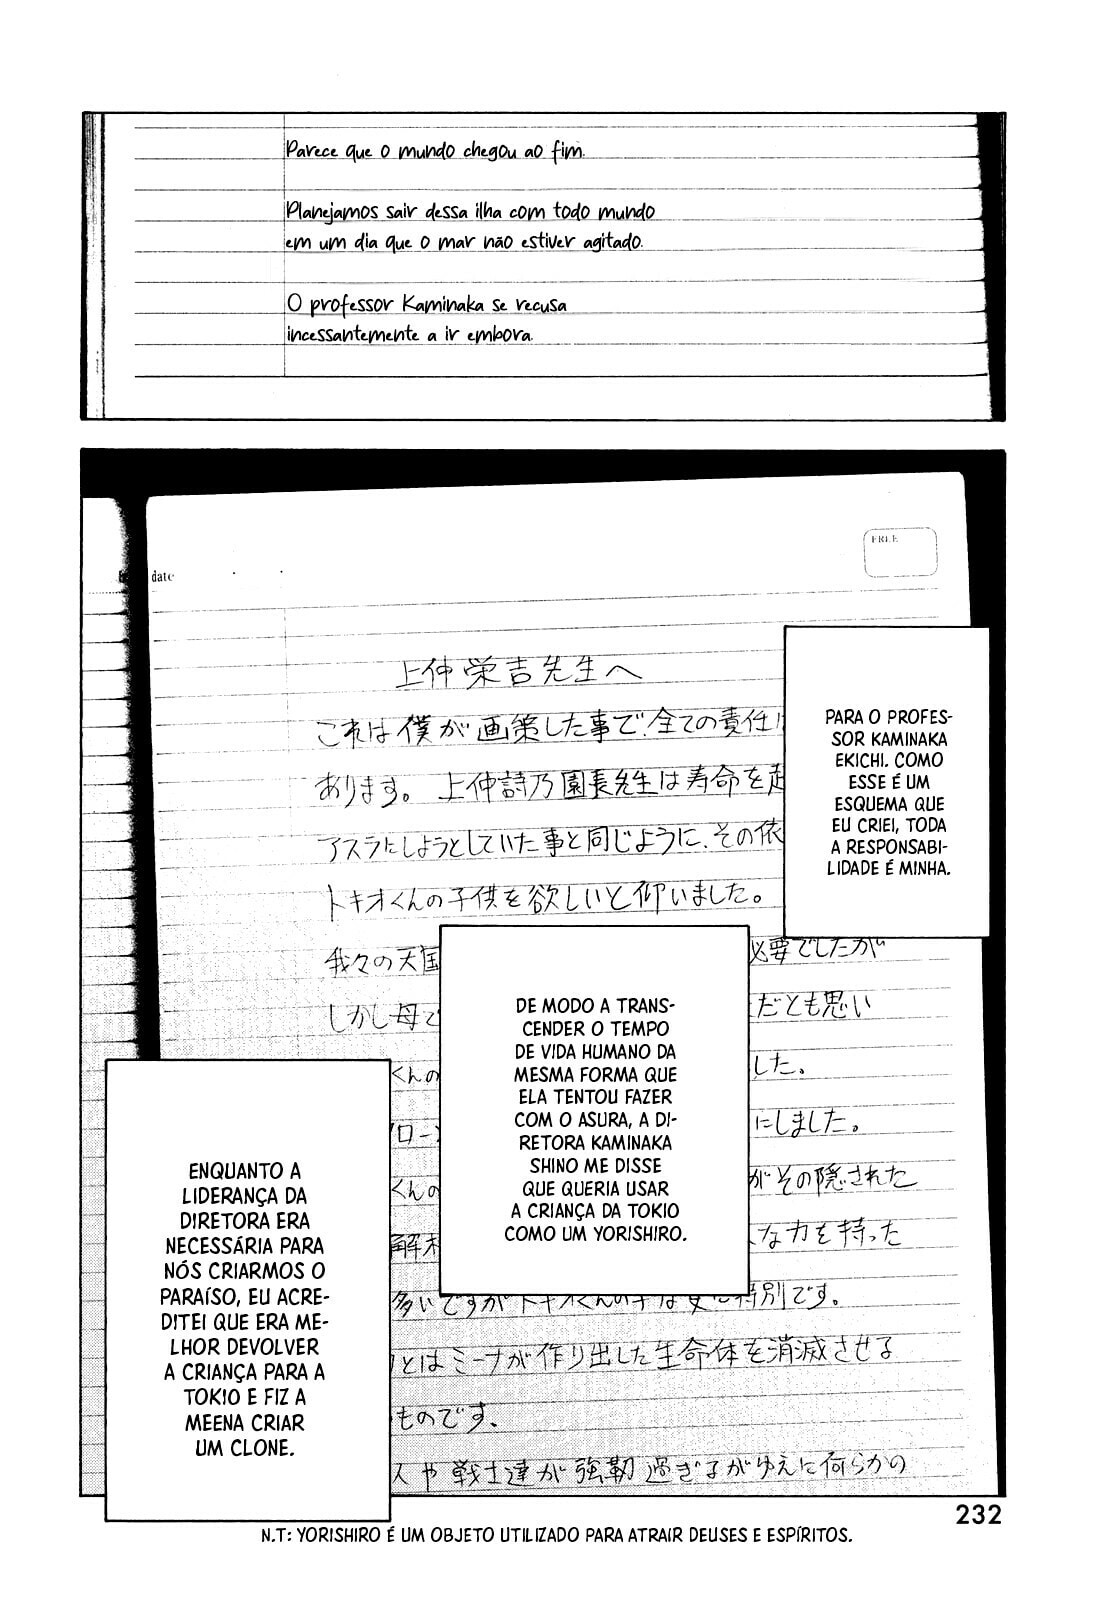 Parece que o mundo chegou ao fim.
Planejamos sair dessa ilha com todo mundo
em um dia que o mar não estiver agitado.
O professor Kaminaka se recusa
incessantemente a ir embora.
FREE
date
上仲栄吉先生へ
これは僕が画策した事で、全ての責任は
あります。上仲詩乃園長先生は寿命を
アスラにしようとしていた事と同じように、その依
トキオくんの子供を欲しいと仰いました。
我々の天国 必要でしたが
しかし母 だとも思い
くんの した。
ロー にしました。
くんの がその隠された
解 な力を持った
多いですがトキオくんの子は更に特別です。
とはミーナが作り出した生命体を消滅させる
ものです、
スや戦士達が強靭過ぎるがゆえに何らかの
PARA O PROFES-
SOR KAMINAKA
EKICHI. COMO
ESSE É UM
ESQUEMA QUE
EU CRIEI, TODA
A RESPONSABI-
LIDADE É MINHA.
DE MODO A TRANS-
CENDER O TEMPO
DE VIDA HUMANO DA
MESMA FORMA QUE
ELA TENTOU FAZER
COM O ASURA, A DI-
RETORA KAMINAKA
SHINO ME DISSE
QUE QUERIA USAR
A CRIANÇA DA TOKIO
COMO UM YORISHIRO.
ENQUANTO A
LIDERANÇA DA
DIRETORA ERA
NECESSÁRIA PARA
NÓS CRIARMOS O
PARAÍSO, EU ACRE-
DITEI QUE ERA ME-
LHOR DEVOLVER
A CRIANÇA PARA A
TOKIO E FIZ A
MEENA CRIAR
UM CLONE.
232
N.T: YORISHIRO É UM OBJETO UTILIZADO PARA ATRAIR DEUSES E ESPÍRITOS.